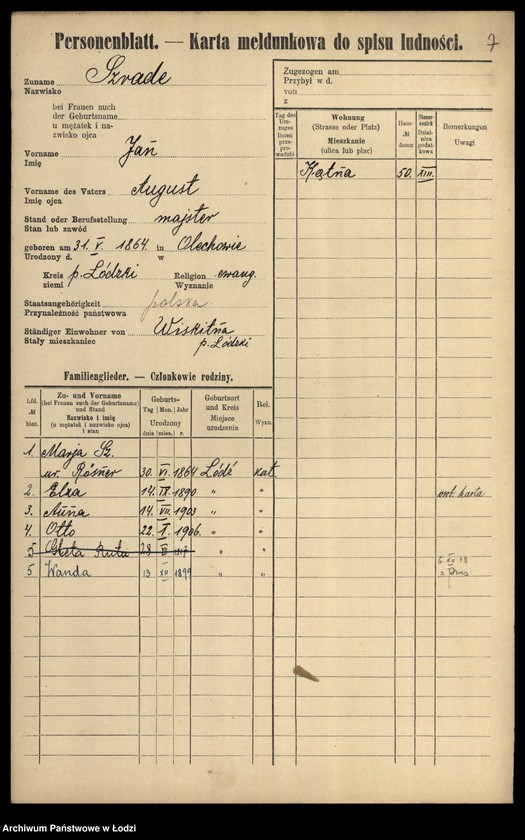 Personenblatt. — Karta meldunkowa do spisu ludności.
7
Zuname Szrade
Nazwisko
bei Frauen auch
der Geburtsname
u mężatek i na-
zwisko ojca
Vorname Jań
Imię
Vorname des Vaters August
Imię ojca
Stand oder Berufsstellung majster
Stan lub zawód
geboren am 31. V. 1864. in Olechowie
Urodzony d. w
Kreis p. Łódzki Religion ewang.
ziemi Wyznanie
Staatsangehörigkeit polska
Przynależność państwowa
Ständiger Einwohner von Wiskitña
Stały mieszkaniec p. Łódzki
Zugezogen am
Przybył w d.
von
z
Tag des Um-zuges Dzień prze-prowadzki
Wohnung (Strasse oder Platz) Mieszkanie (ulica lub plac)
Haus-№ domu
Steuer-bezirk Dziel-nica podat-kowa
Bemerkungen Uwagi
Kątña 50. XIII.
Familienglieder. — Członkowie rodziny.
Lfd. № bież.
Zu- und Vorname (bei Frauen auch der Geburtsname) und Stand Nazwisko i imię (u mężatek i nazwisko ojca) i stan
Geburts- Tag Mon. Jahr Urodzony dnia mies. r.
Geburtsort und Kreis Miejsce urodzenia
Rel. Wyzn.
1. Marja Sz.
ur. Rösner 30. VI. 1864 Łódź kat.
2. Elza 14. IX. 1890 " " osob. karta
3. Añna 14. VII. 1903 " "
4. Otto 22. I. 1906. " "
5 Ruta 28 " "
5 Wanda 13 XII 1899 " "
Archiwum Państwowe w Łodzi